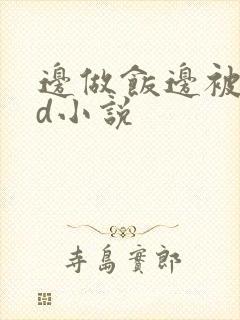 邊做飯邊被
d小說
寺島實郎